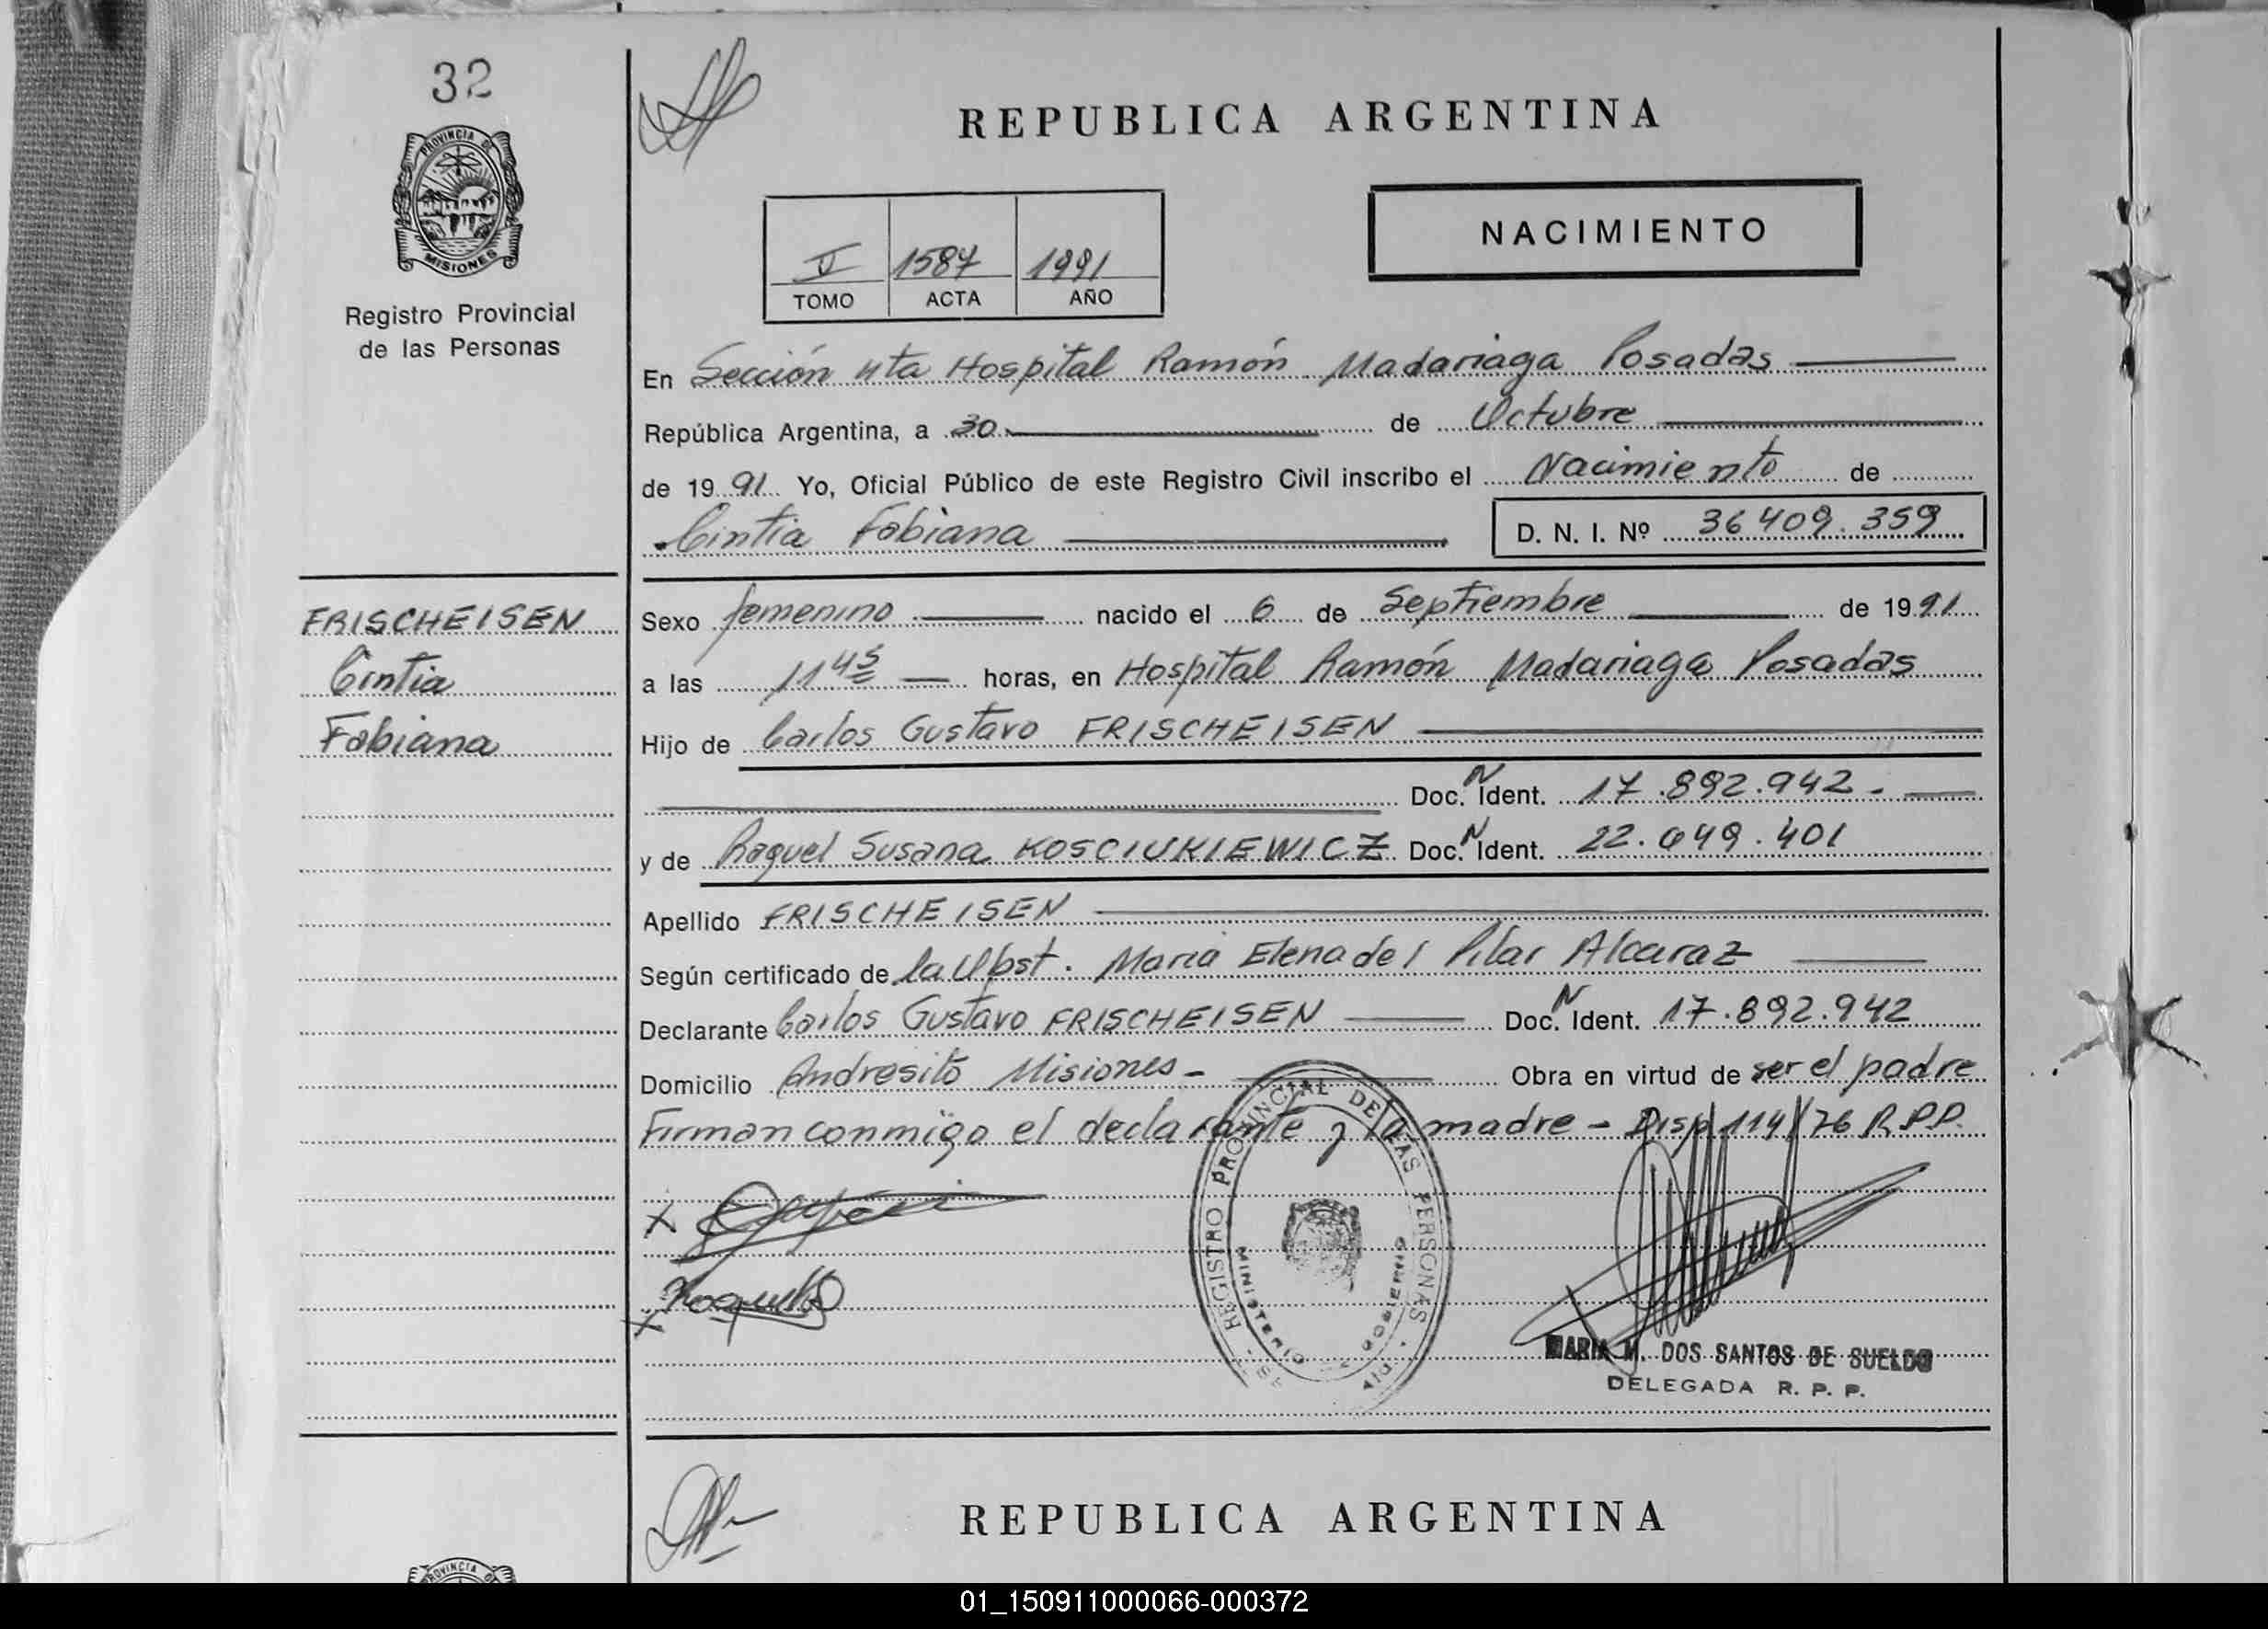 32
PROVINCIA DE
MISIONES
Registro Provincial
de las Personas
REPUBLICA ARGENTINA
NACIMIENTO
V 1587 1991
TOMO ACTA AÑO
En Sección 4ta Hospital Ramón Madariaga Posadas
República Argentina, a 30 de Octubre
de 1991 Yo, Oficial Público de este Registro Civil inscribo el Nacimiento de
Cintia Fabiana D. N. I. Nº 36 409. 359
FRISCHEISEN
Cintia
Fabiana
Sexo femenino nacido el 6 de Septiembre de 1991
a las 11 45 horas, en Hospital Ramón Madariaga Posadas
Hijo de Carlos Gustavo FRISCHEISEN
Doc. N Ident. 17.892.942.-
y de Raquel Susana KOSCIUKIEWICZ Doc. N Ident. 22.049.401
Apellido FRISCHEISEN
Según certificado de la Obst. Maria Elena del Pilar Alcaraz
Declarante Carlos Gustavo FRISCHEISEN Doc. N Ident. 17.892.942
Domicilio Andresito Misiones- Obra en virtud de ser el padre
Firman conmigo el declarante y la madre - Disp 114/76 R.P.P.
REGISTRO PROVINCIAL DE LAS PERSONAS
MINISTERIO GOBIERNO
MARIA M. DOS SANTOS DE SUELDO
DELEGADA R. P. P.
REPUBLICA ARGENTINA
PROVINCIA DE
01_150911000066-000372